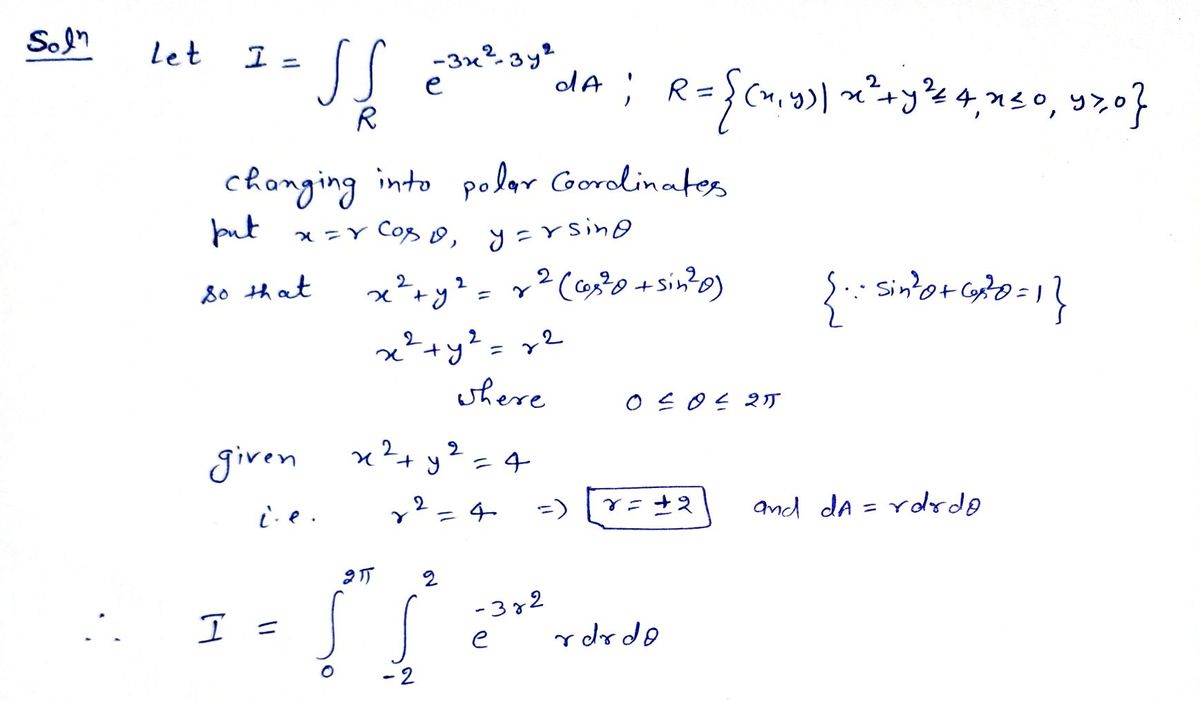 Soln Let I = ∫∫_R e^{-3x²-3y²} dA ; R = {(x,y) | x²+y² ≤ 4, x ≤ 0, y ≥ 0}
changing into polar Coordinates
put x = r Cos θ, y = r sin θ
so that x²+y² = r² (cos²θ + sin²θ) {∵ sin²θ + cos²θ = 1}
x²+y² = r²
where 0 ≤ θ ≤ 2π
given x²+y² = 4
i.e. r² = 4 => r = ±2 and dA = r dr dθ
∴ I = ∫_0^{2π} ∫_{-2}^{2} e^{-3r²} r dr dθ